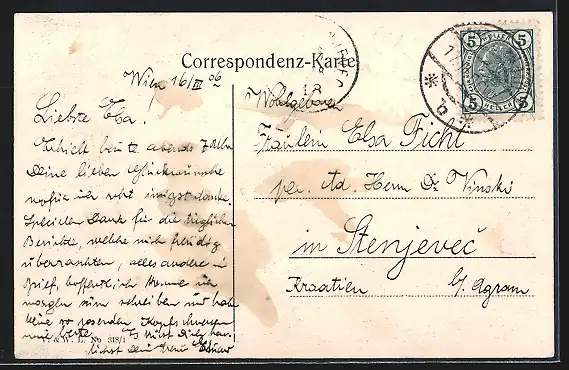 Correspondenz-Karte
Wien 16/III 06
Liebste Elsa!
Erhielt heute abends 7 Uhr
Deine lieben Glückwünsche
wofür ich recht innigst danke.
Speciellen Dank für die täglichen
Berichte, welche mich freudig
überraschten, alles andere im
Brief, hoffentlich komme ich
morgen zum schreiben und habe
keine so rasenden Kopfschmerzen
wie heute. Es küsst Dich herz-
lichst Dein treuer
& W. L. No 318/1
Wohlgeboren
Fräulein Elsa Fichl
per. Ad. Herrn Dr Vinski
in Stenjeveč
Kroatien b/ Agram
5 HELLER 5
5 HELLER 5